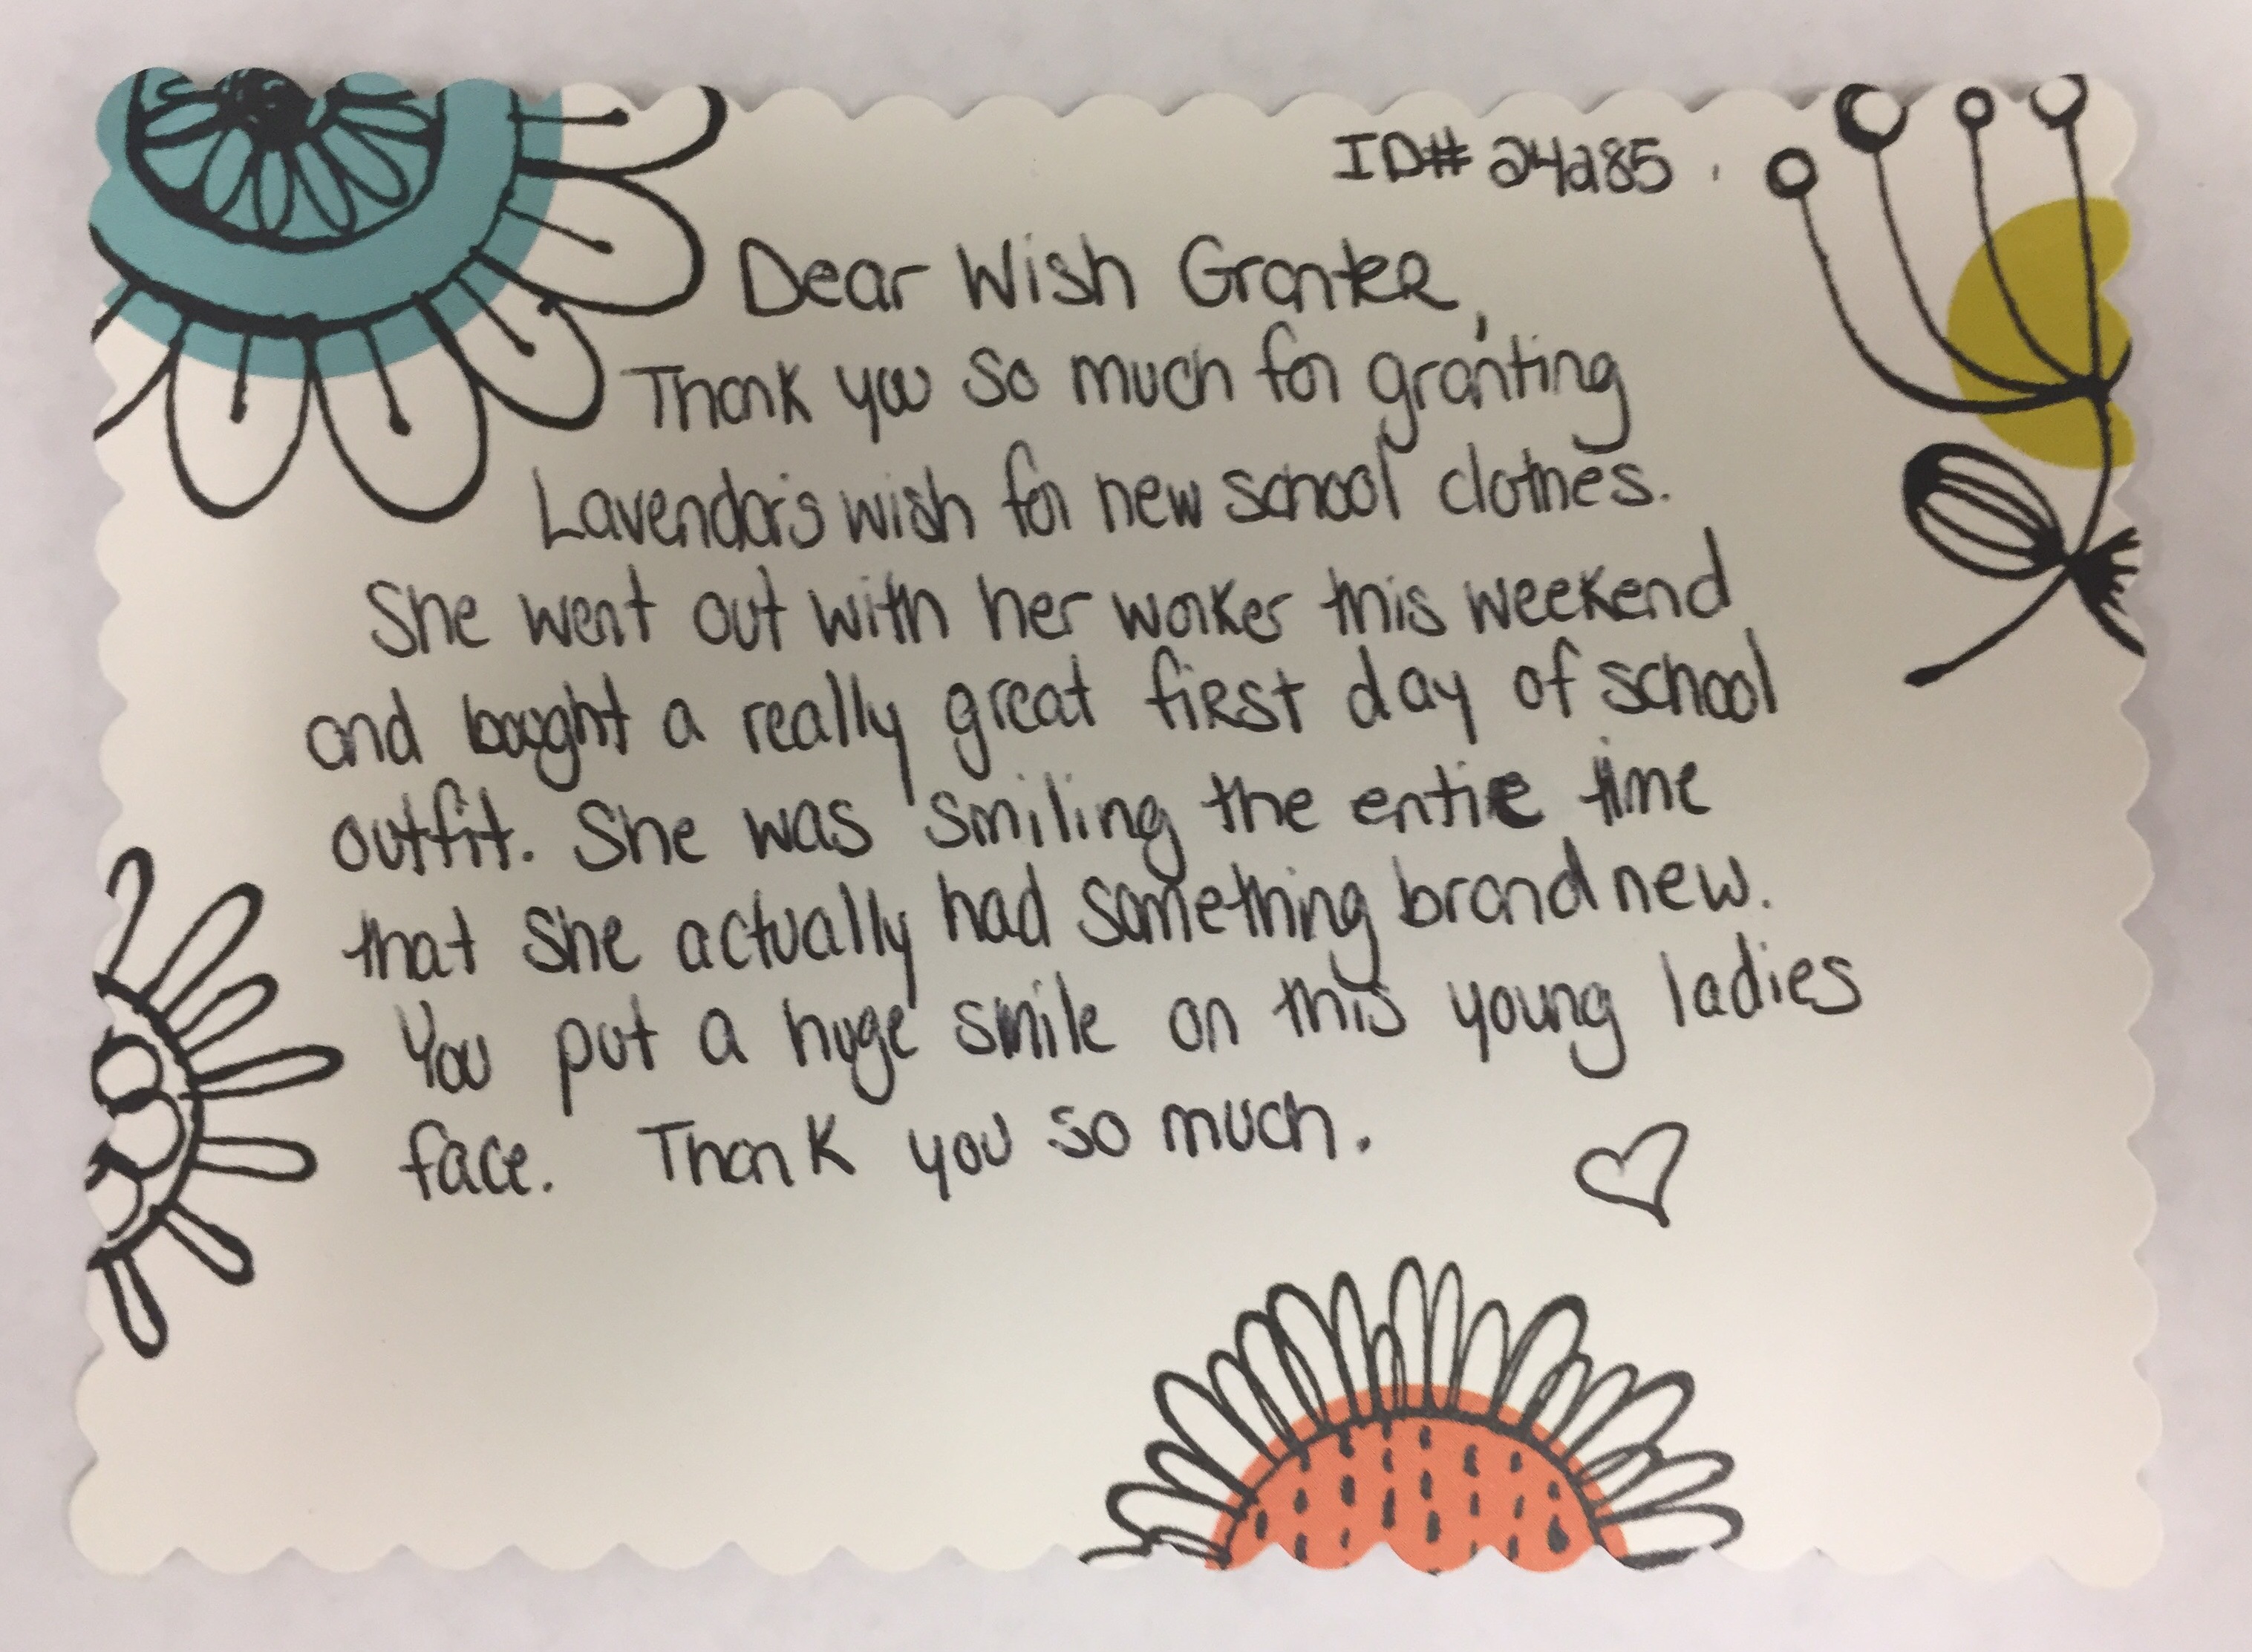 ID# 24285
Dear Wish Granter,
Thank you so much for granting
Lavendar's wish for new school clothes.
She went out with her worker this weekend
and bought a really great first day of school
outfit. She was smiling the entire time
that she actually had something brand new.
You put a huge smile on this young ladies
face. Thank you so much.